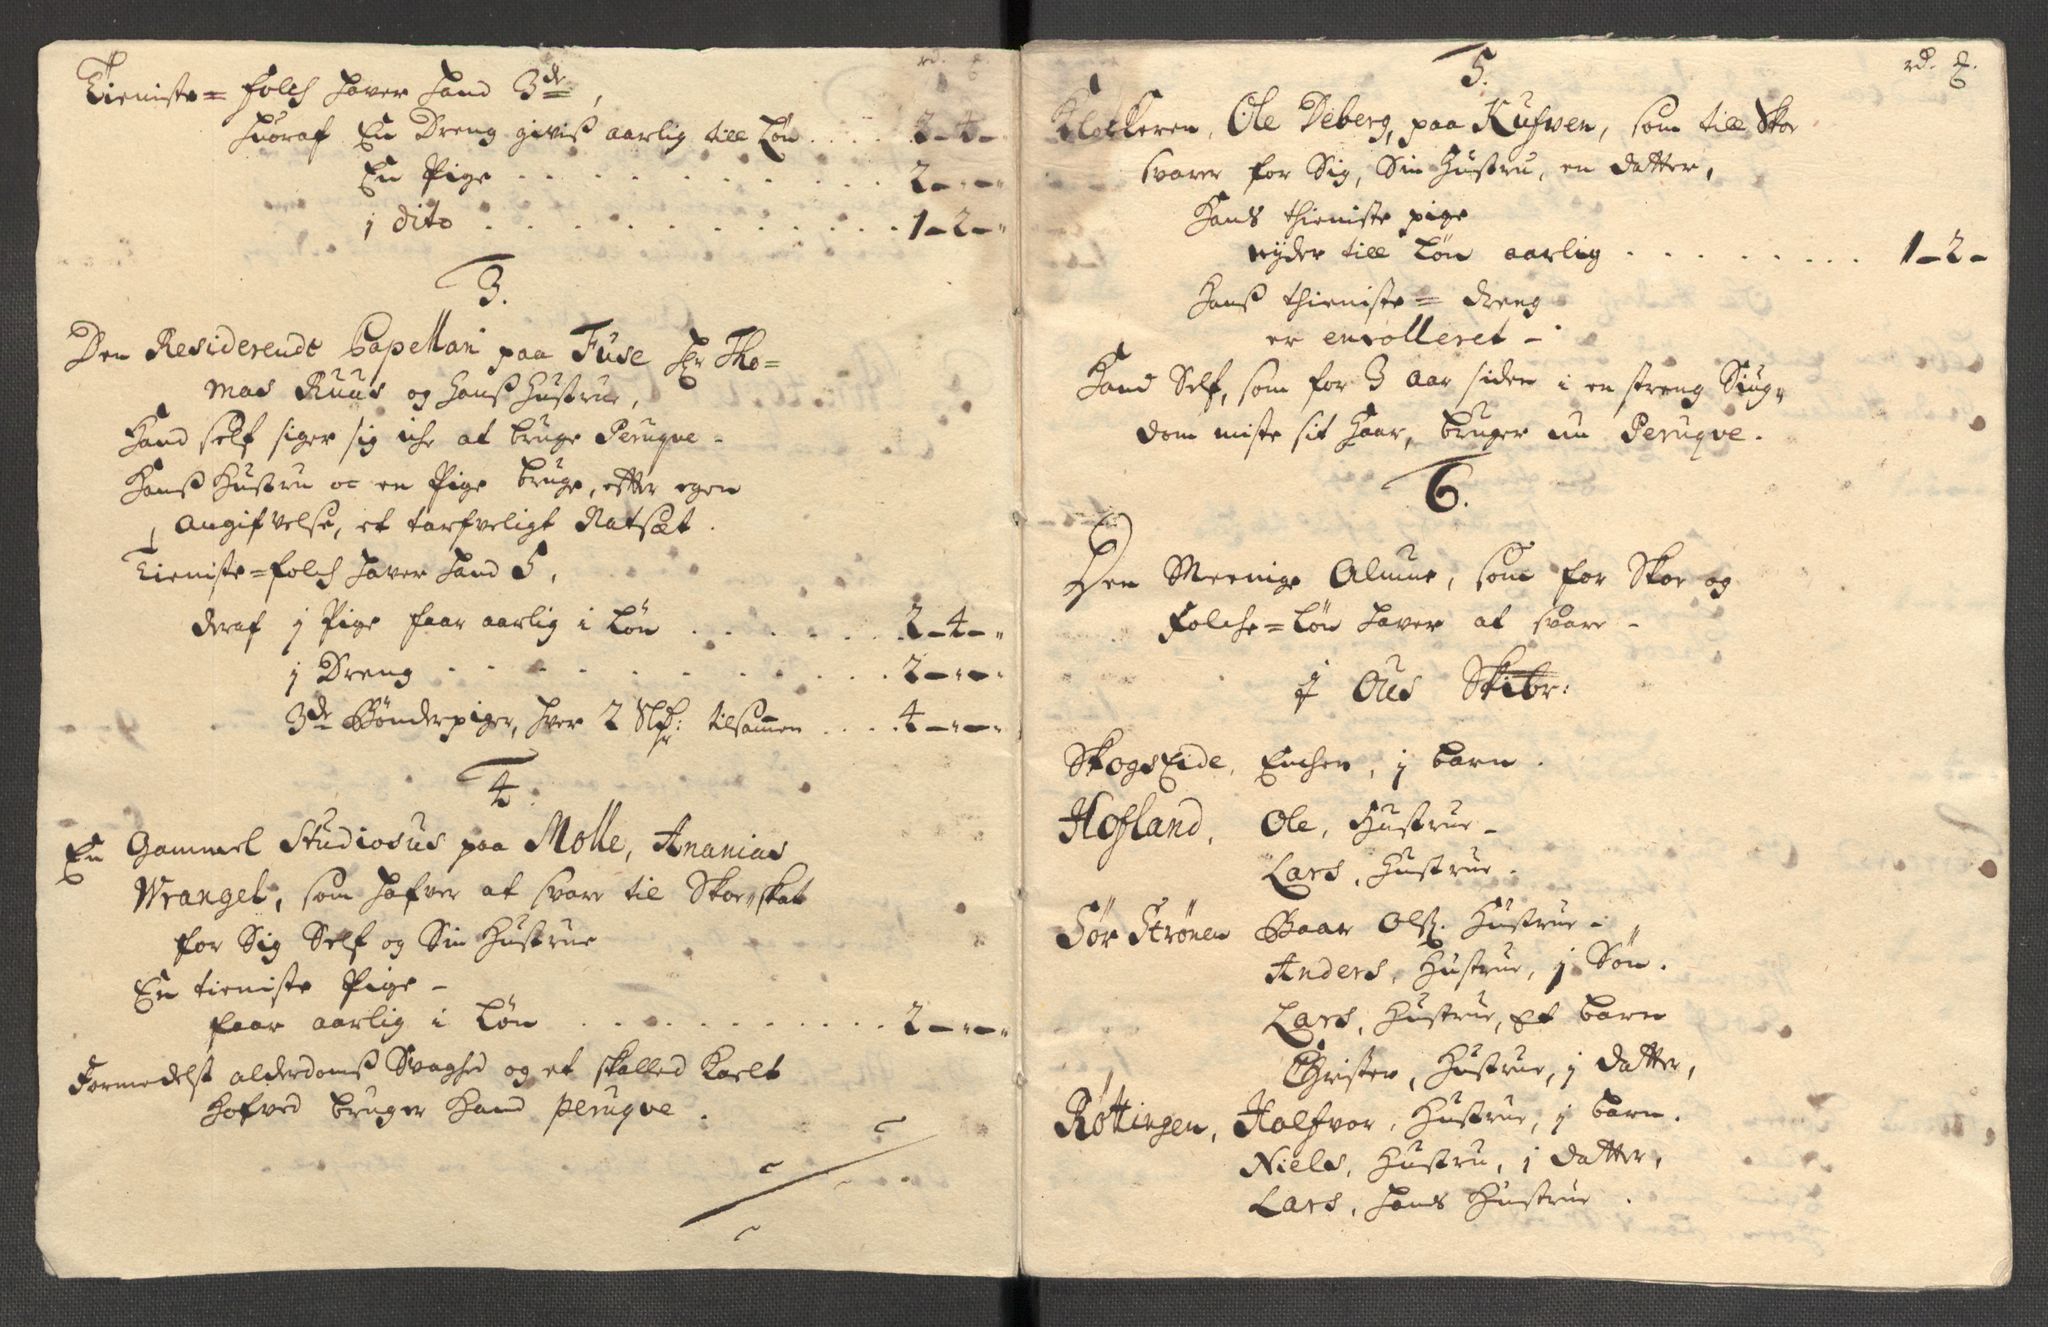 rd. ß.
Tieniste=folch haver hand 3de,
huoraf En Dreng givis aarlig till Løn . . . . 3-4-
En Pige . . . . . . . . . . 2-"-"
1 dito . . . . . . . . . . . 1-2-"
3.
Den Residerende Capellan paa Fuse Hr Tho=
mas Ruus og hanß Hustrue,
Hand self siger sig iche at bruge Peruqve-
Hanß Hustru oc en Pige bruge, efter egen
Angifvelse, et tarfveligt Natsæt.
Tieniste=folch haver hand 5,
deraf 1 Pige faar aarlig i Løn . . . . . . 2-4-"
1 Dreng . . . . . . . . . 2-"-"
3de Bønderpiger, hver 2 Slhr: tilsammen . . . . 4-"-"
4.
En Gammel Studiosus paa Molle, Ananias
Wrangel, som hafver at svare til Skoe,,skat
for Sig Self og Sin Hustrue
En tieniste Pige-
faar aarlig i Løn . . . . . . . . . . 2-"-"
Formedelst alderdomß Svaghed og et skalled Kaelt
hofved bruger Hand peruqve.
rd. ß.
5.
Klokkeren, Ole Deberg, paa Kufven, som till Skoe
svarer for Sig, Sin Hustru, en datter,
Hans thieniste pige
nyder till Løn aarlig . . . . . . . . 1-2-
Hanß thieniste= dreng
er enrolleret-
Hand Self, som for 3 aar siden i en streng Siug,,
dom miste sit Haar, bruger nu Peruqve.
6.
Den Meenige Almue, som for Skoe og
Folche=Løn haver at svare-
I Oues Skibr:
SkogsEide, Enchen, 1 barn.
Hofland, Ole, Hustrue-
Lars, Hustrue.
Sør Strønen Baar Olß. Hustrue-
Anders, Hustrue, 1 Søn.
Lars, Hustrue, Et barn
Christen, Hustrue, 1 datter,
Røttingen, Halfvor, Hustrue, 1 barn.
Niels, Hustru, 1 datter,
Lars, hans Hustrue.